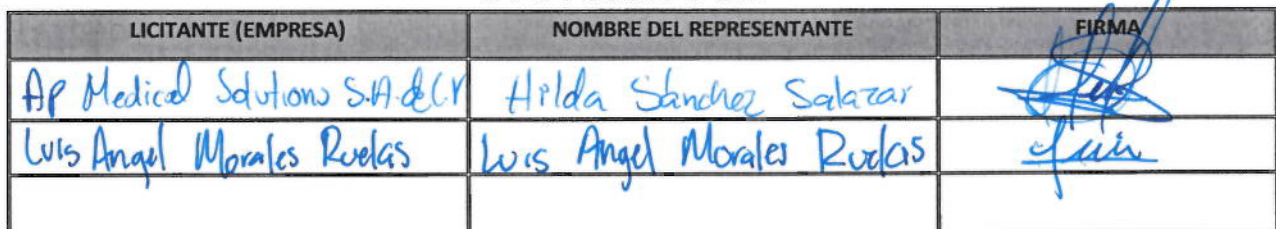 LICITANTE (EMPRESA) NOMBRE DEL REPRESENTANTE FIRMA
Ap Medical Solutions S.A. de C.V Hilda Sánchez Salazar
Luis Angel Morales Ruelas Luis Angel Morales Ruelas